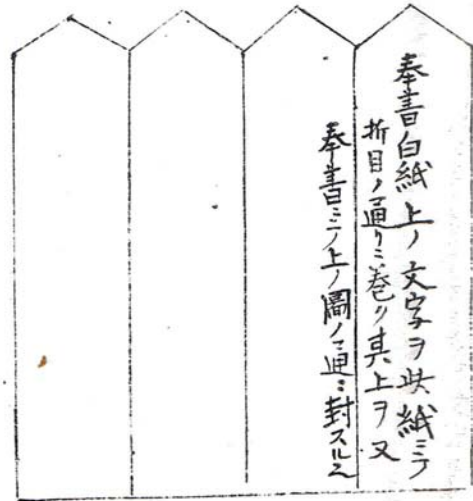 奉書白紙上ノ文字ヲ此紙ニテ
折目ノ通リニ巻ク其上ヲ又
奉書ニテ上ノ圖ノ通ニ封スル也